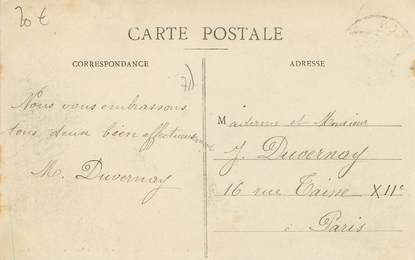 20 €
CARTE POSTALE
CORRESPONDANCE
ADRESSE
Nous vous embrassons
tous deux bien affectueusement
M. Duvernay
Madame et Monsieur
J. Duvernay
16 rue Taine XIIe
à Paris